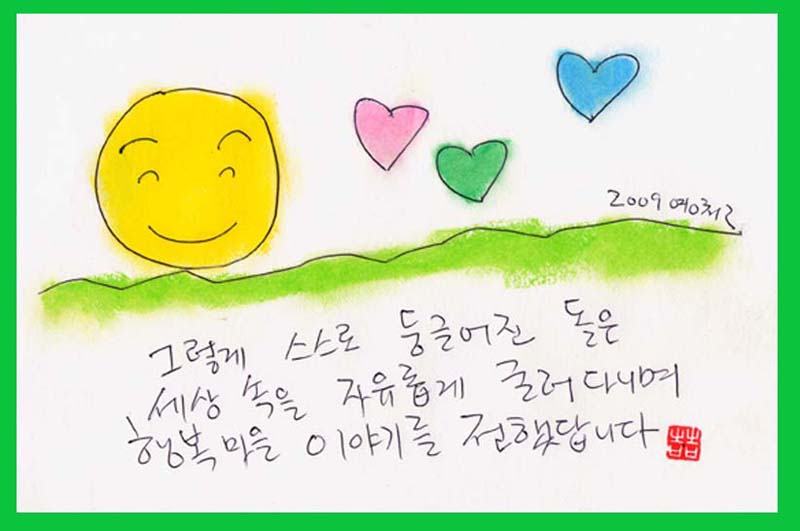 2009 영철
그렇게 스스로 둥글어진 돌은
세상 속을 자유롭게 굴러다니며
행복마을 이야기를 전했답니다